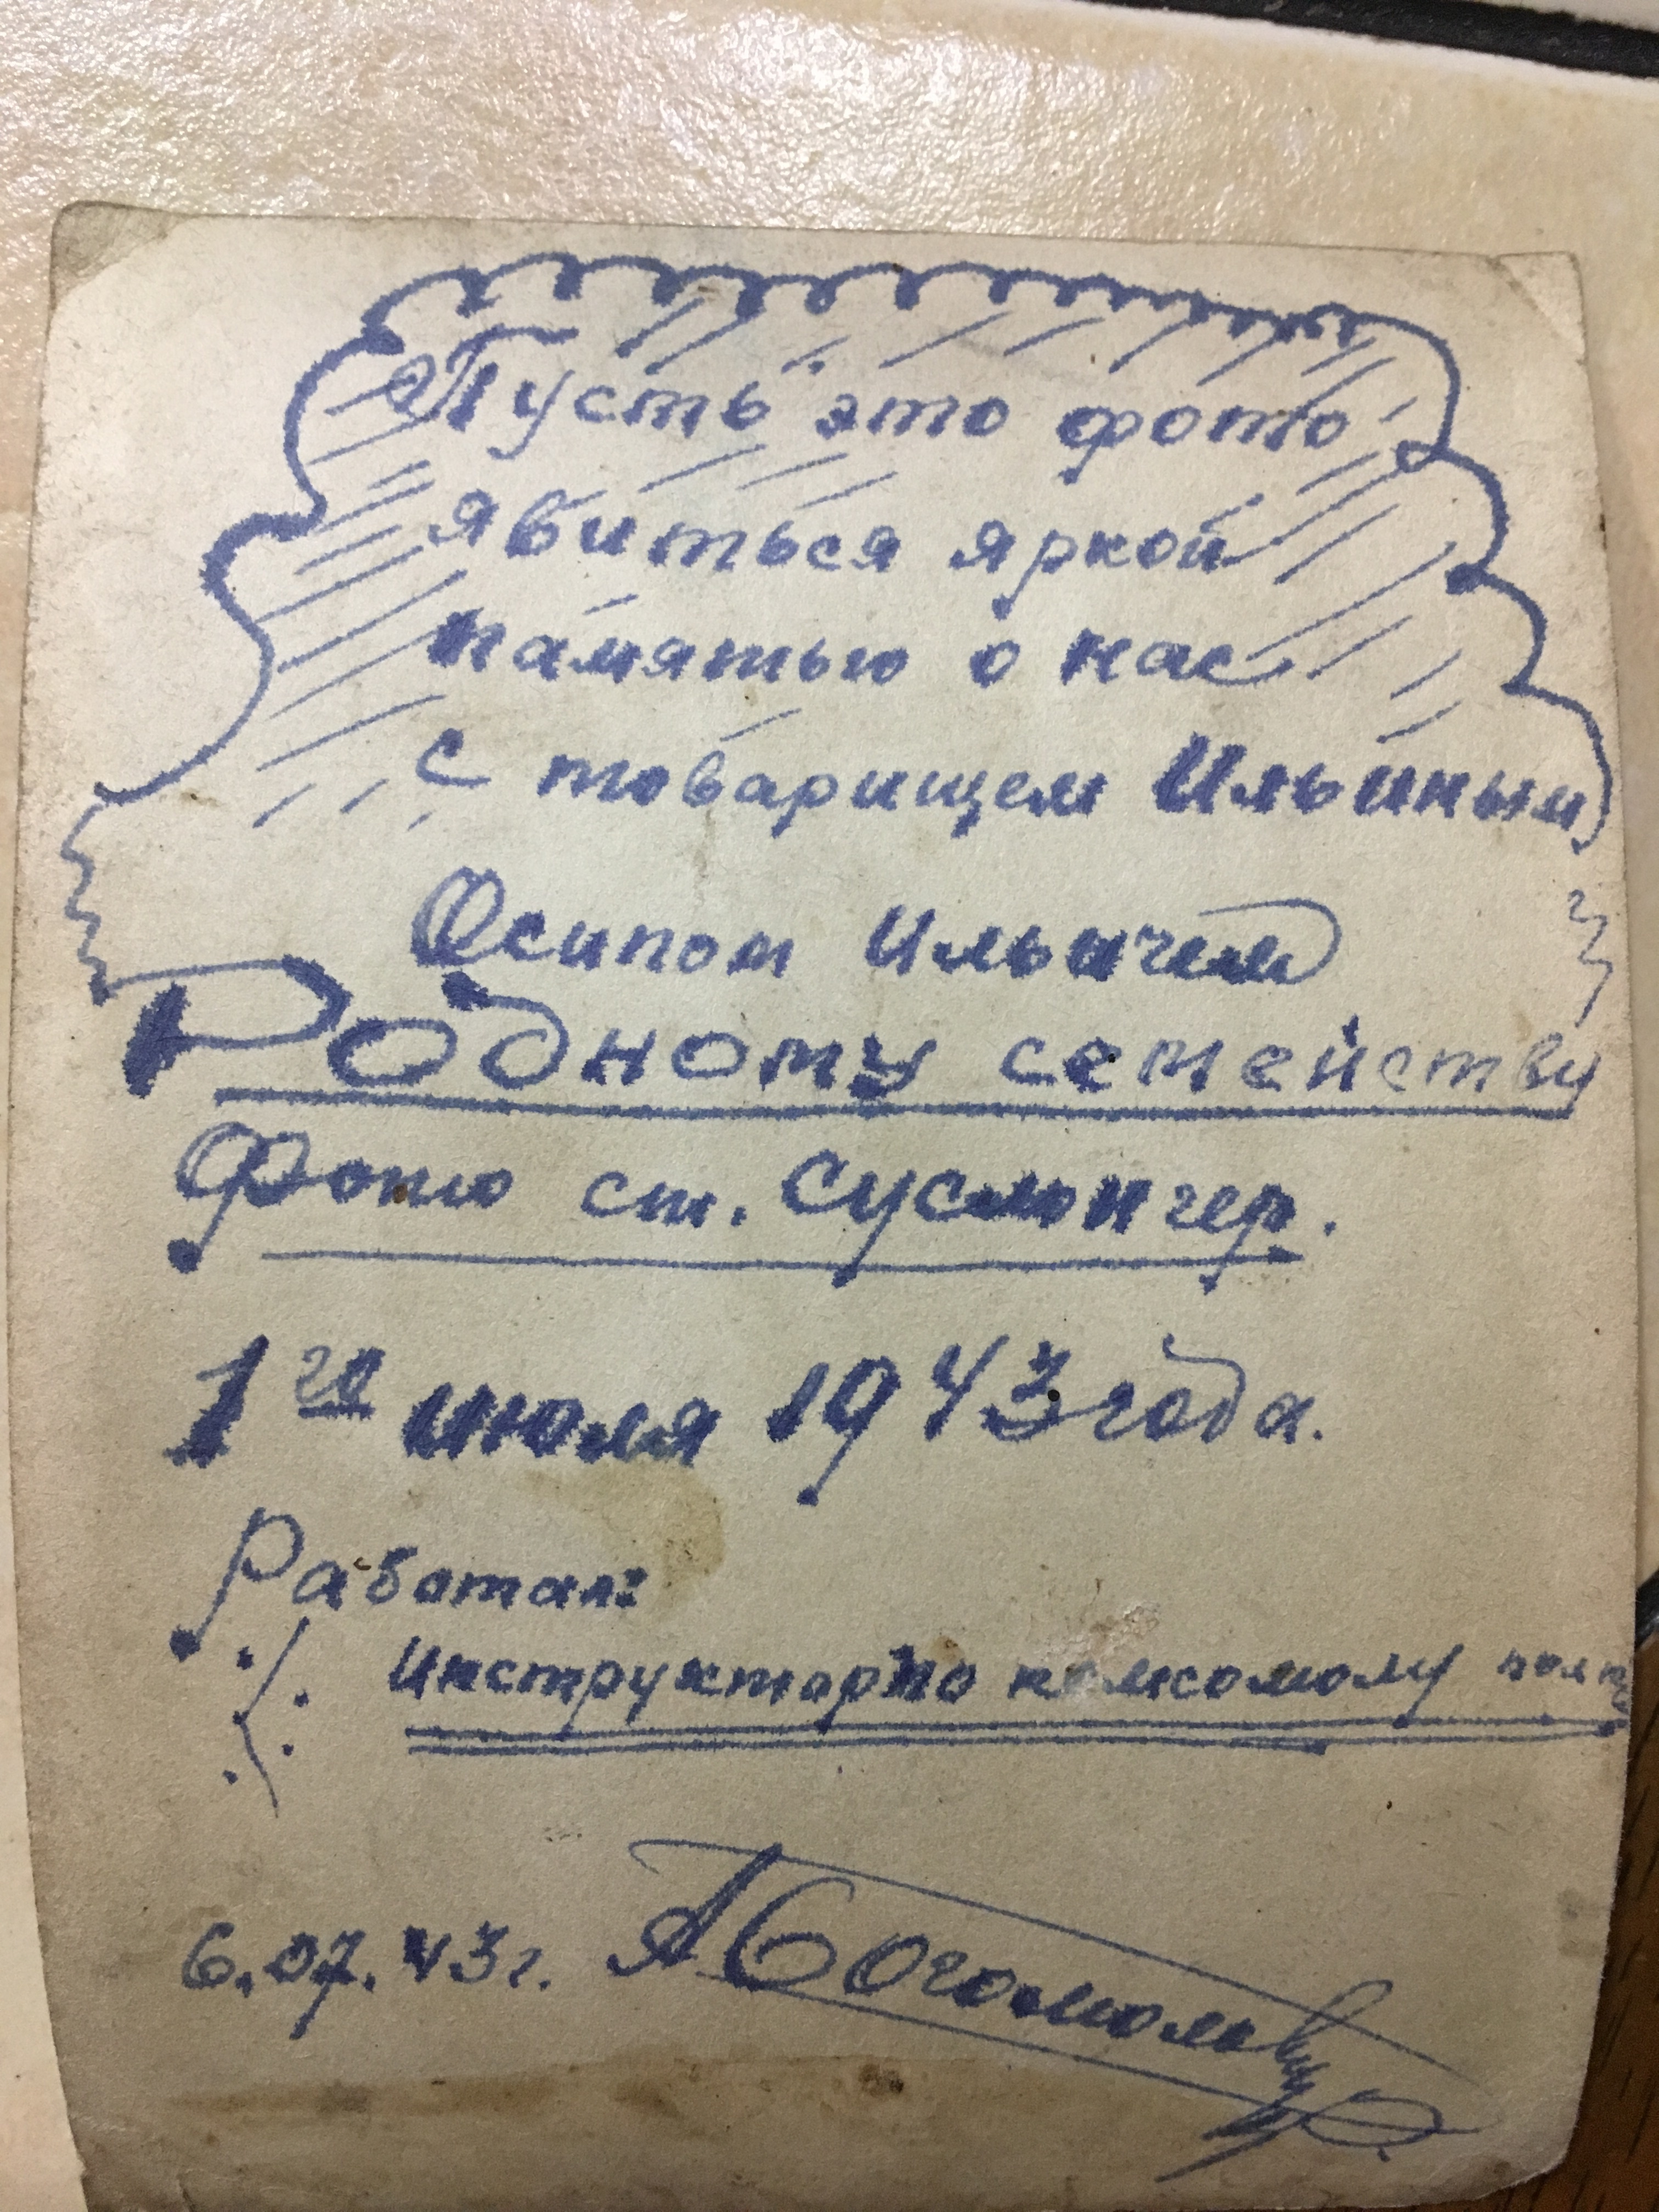 Пусть это фото
явиться яркой
памятью о нас
с товарищем Ильиным
Осипом Ильичем
Родному семейству
Фото ст. Суслонгер.
1го июля 1943 года.
Работал:
Инструктор по комсомолу полка
6.07.43г. А Богомолов